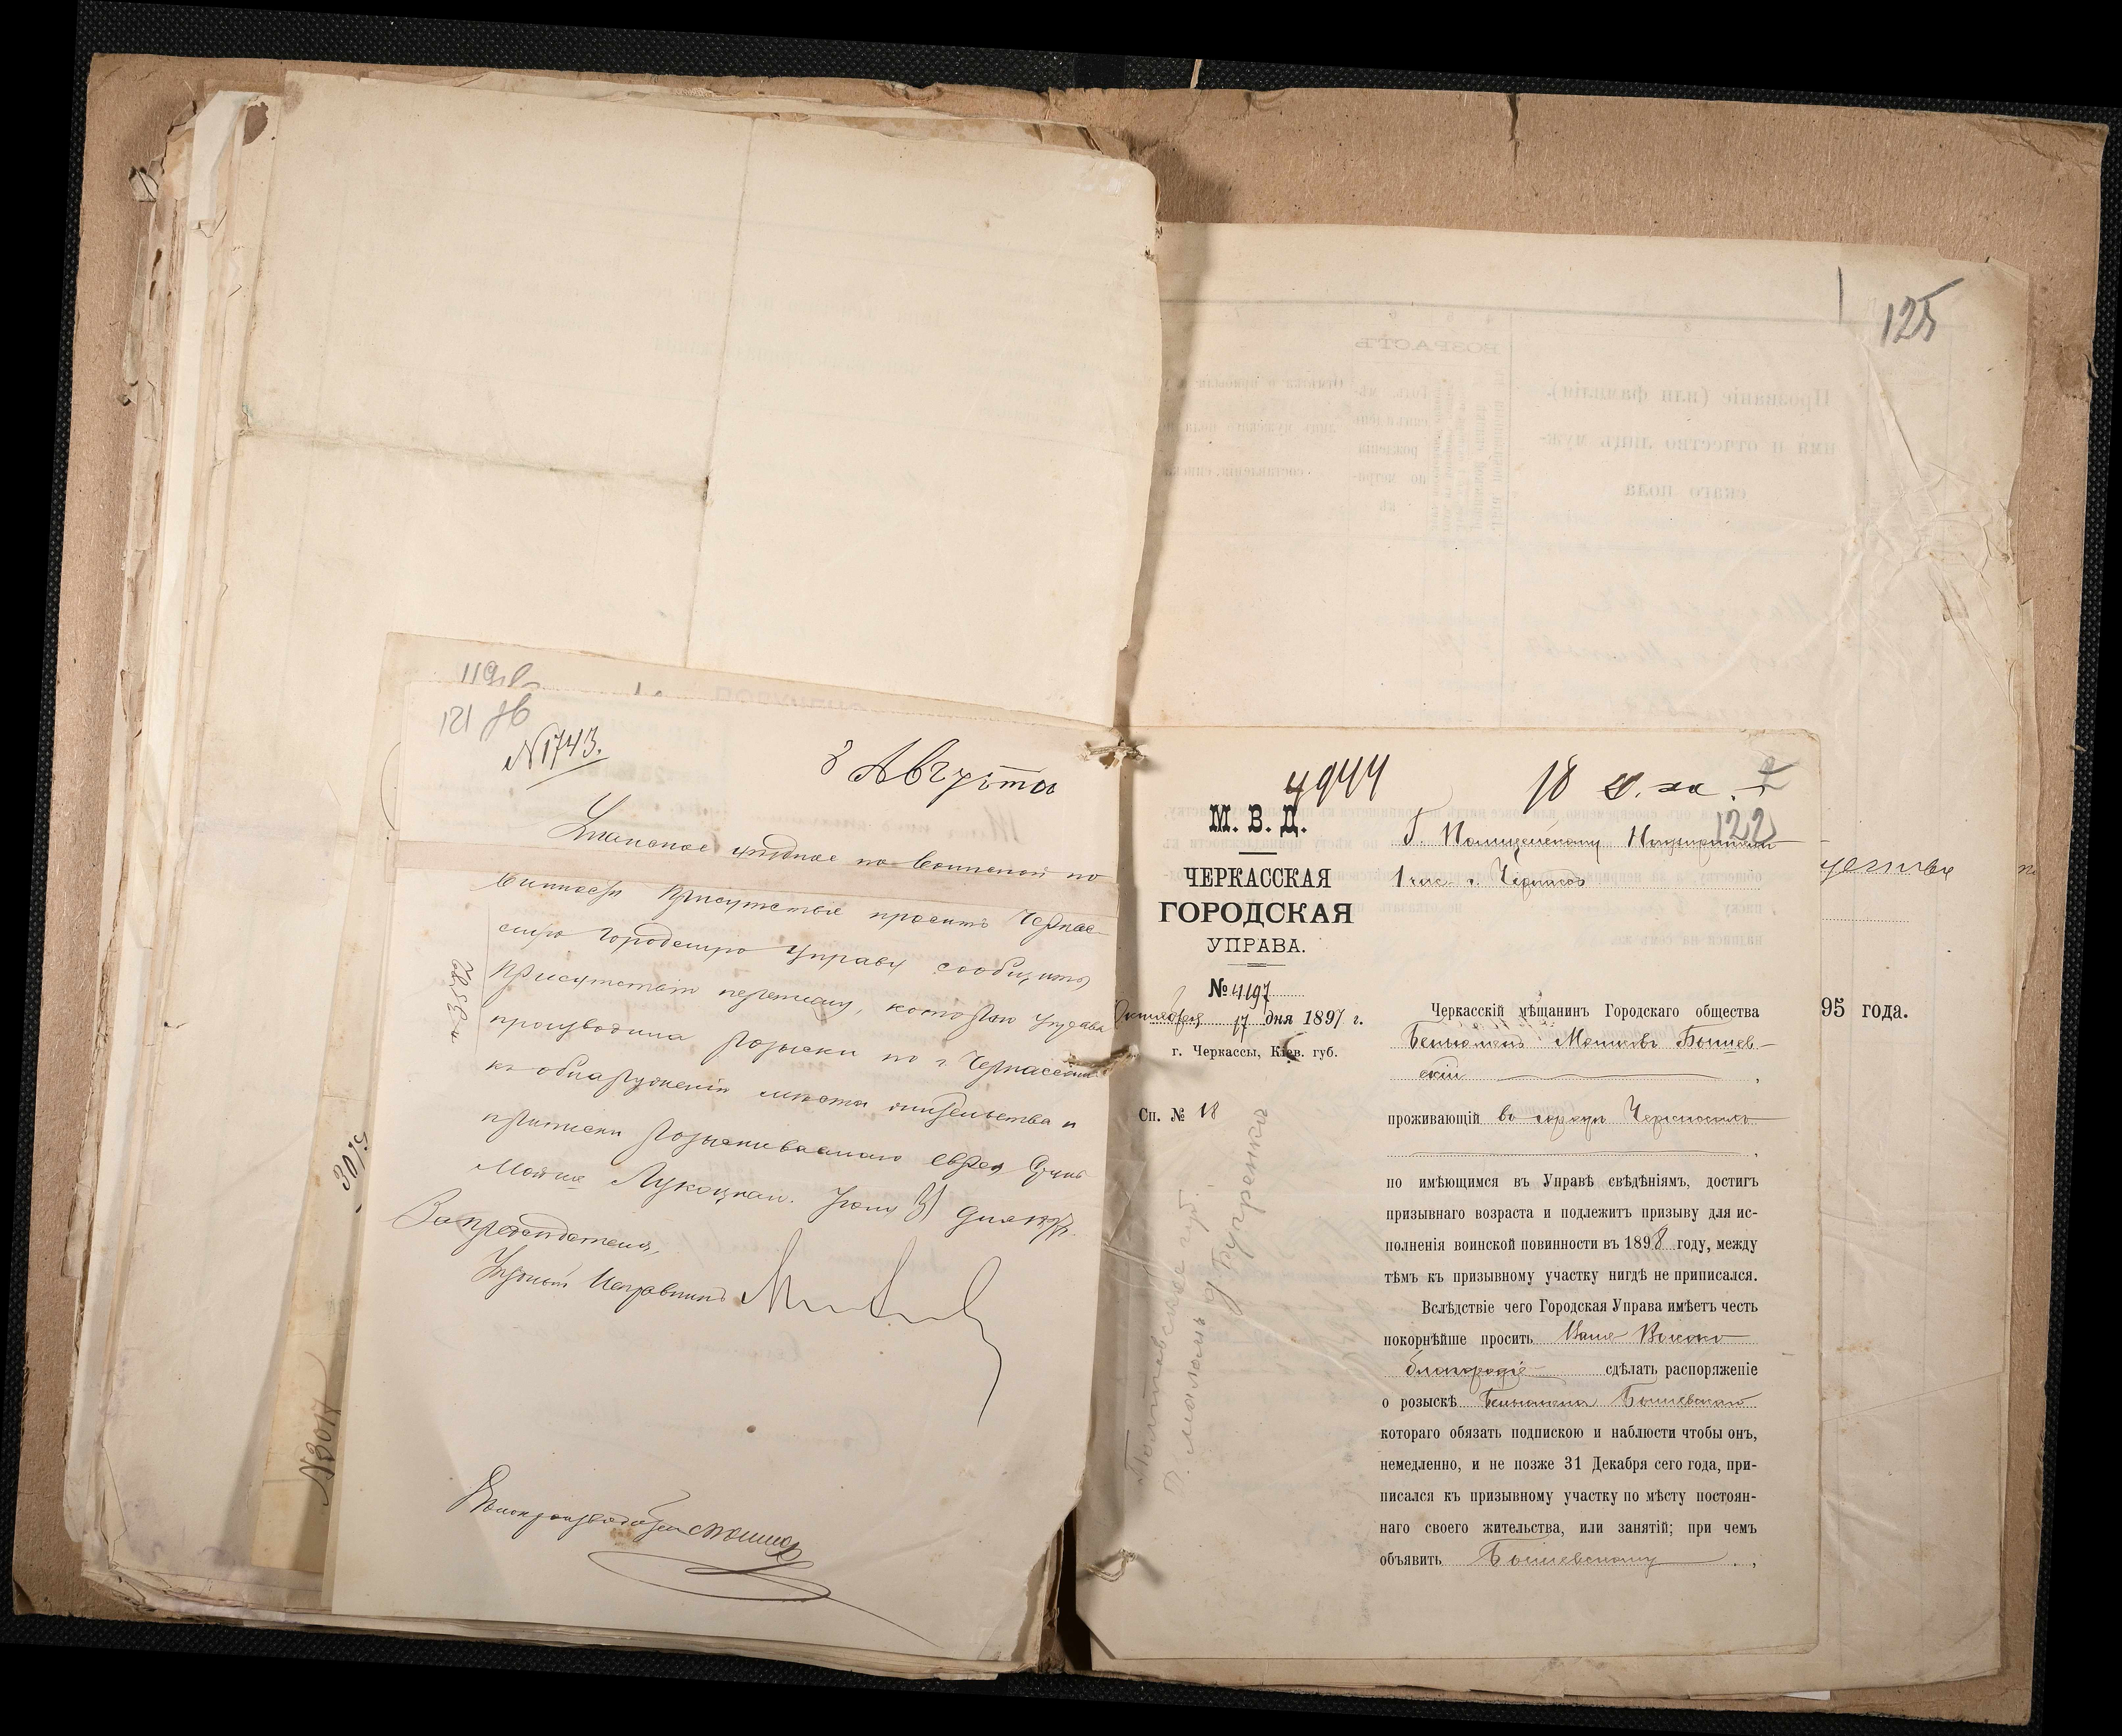 119об
121 об
№ 1743.
8 Августа
уѣздное по воинской по
винности Присутствіе проситъ Черкас
скую Городскую Управу сообщить
Присутствію переписку, которою Управа
производила розыски по г. Черкассамъ
къ обнаруженію мѣста жительства и
приписки розыскиваемаго еврея
Лукацкаго. 31 дня 1897 г.
За предсѣдателя,
Уѣздный Исправникъ
Дѣлопроизводитель
3075
№3017
125
4944
18
122
М. В. Д.
ЧЕРКАССКАЯ
ГОРОДСКАЯ
УПРАВА.
№ 4197
Октября 17 дня 1897 г.
г. Черкассы, Кіев. губ.
Сп. № 18
Г. Полицейскому Надзирателю
1 г. Черкассъ
Черкасскій мѣщанин Городскаго общества
Беньяминъ Мошковъ Бышев-
скій
проживающій въ городѣ Черкассахъ
по имѣющимся въ Управѣ свѣдѣніямъ, достигъ
призывнаго возраста и подлежитъ призыву для ис-
полненія воинской повинности въ 1898 году, между
тѣмъ къ призывному участку нигдѣ не приписался.
Вслѣдствіе чего Городская Управа имѣетъ честь
покорнѣйше просить Ваше Высоко
благородіе сдѣлать распоряженіе
о розыскѣ Беньямина Бышевскаго
котораго обязать подпискою и наблюсти чтобы онъ,
немедленно, и не позже 31 Декабря сего года, при-
писался къ призывному участку по мѣсту постоян-
наго своего жительства, или занятій; при чемъ
объявить Бышевскому,
95 года.